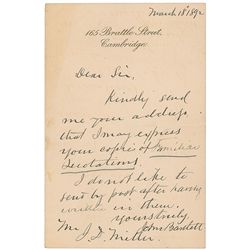 March 18 1892
165 Brattle Street,
Cambridge.
Dear Sir,
Kindly send
me your address
that I may express
your copies of Familiar
Quotations.
I do not like to
send by post after having
written in them.
Yours truly,
John Bartlett
Mr. J. D. Miller.